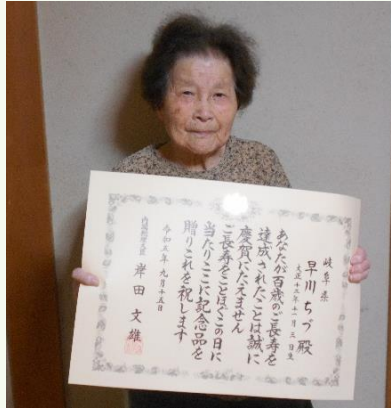 岐阜県
早川ちづ殿
大正十二年十一月三日生
あなたが百歳のご長寿を
達成されたことは誠に
慶賀にたえません
ご長寿をことほぐこの日に
当たりここに記念品を
贈りこれを祝します
令和五年九月十五日
内閣総理大臣 岸田文雄